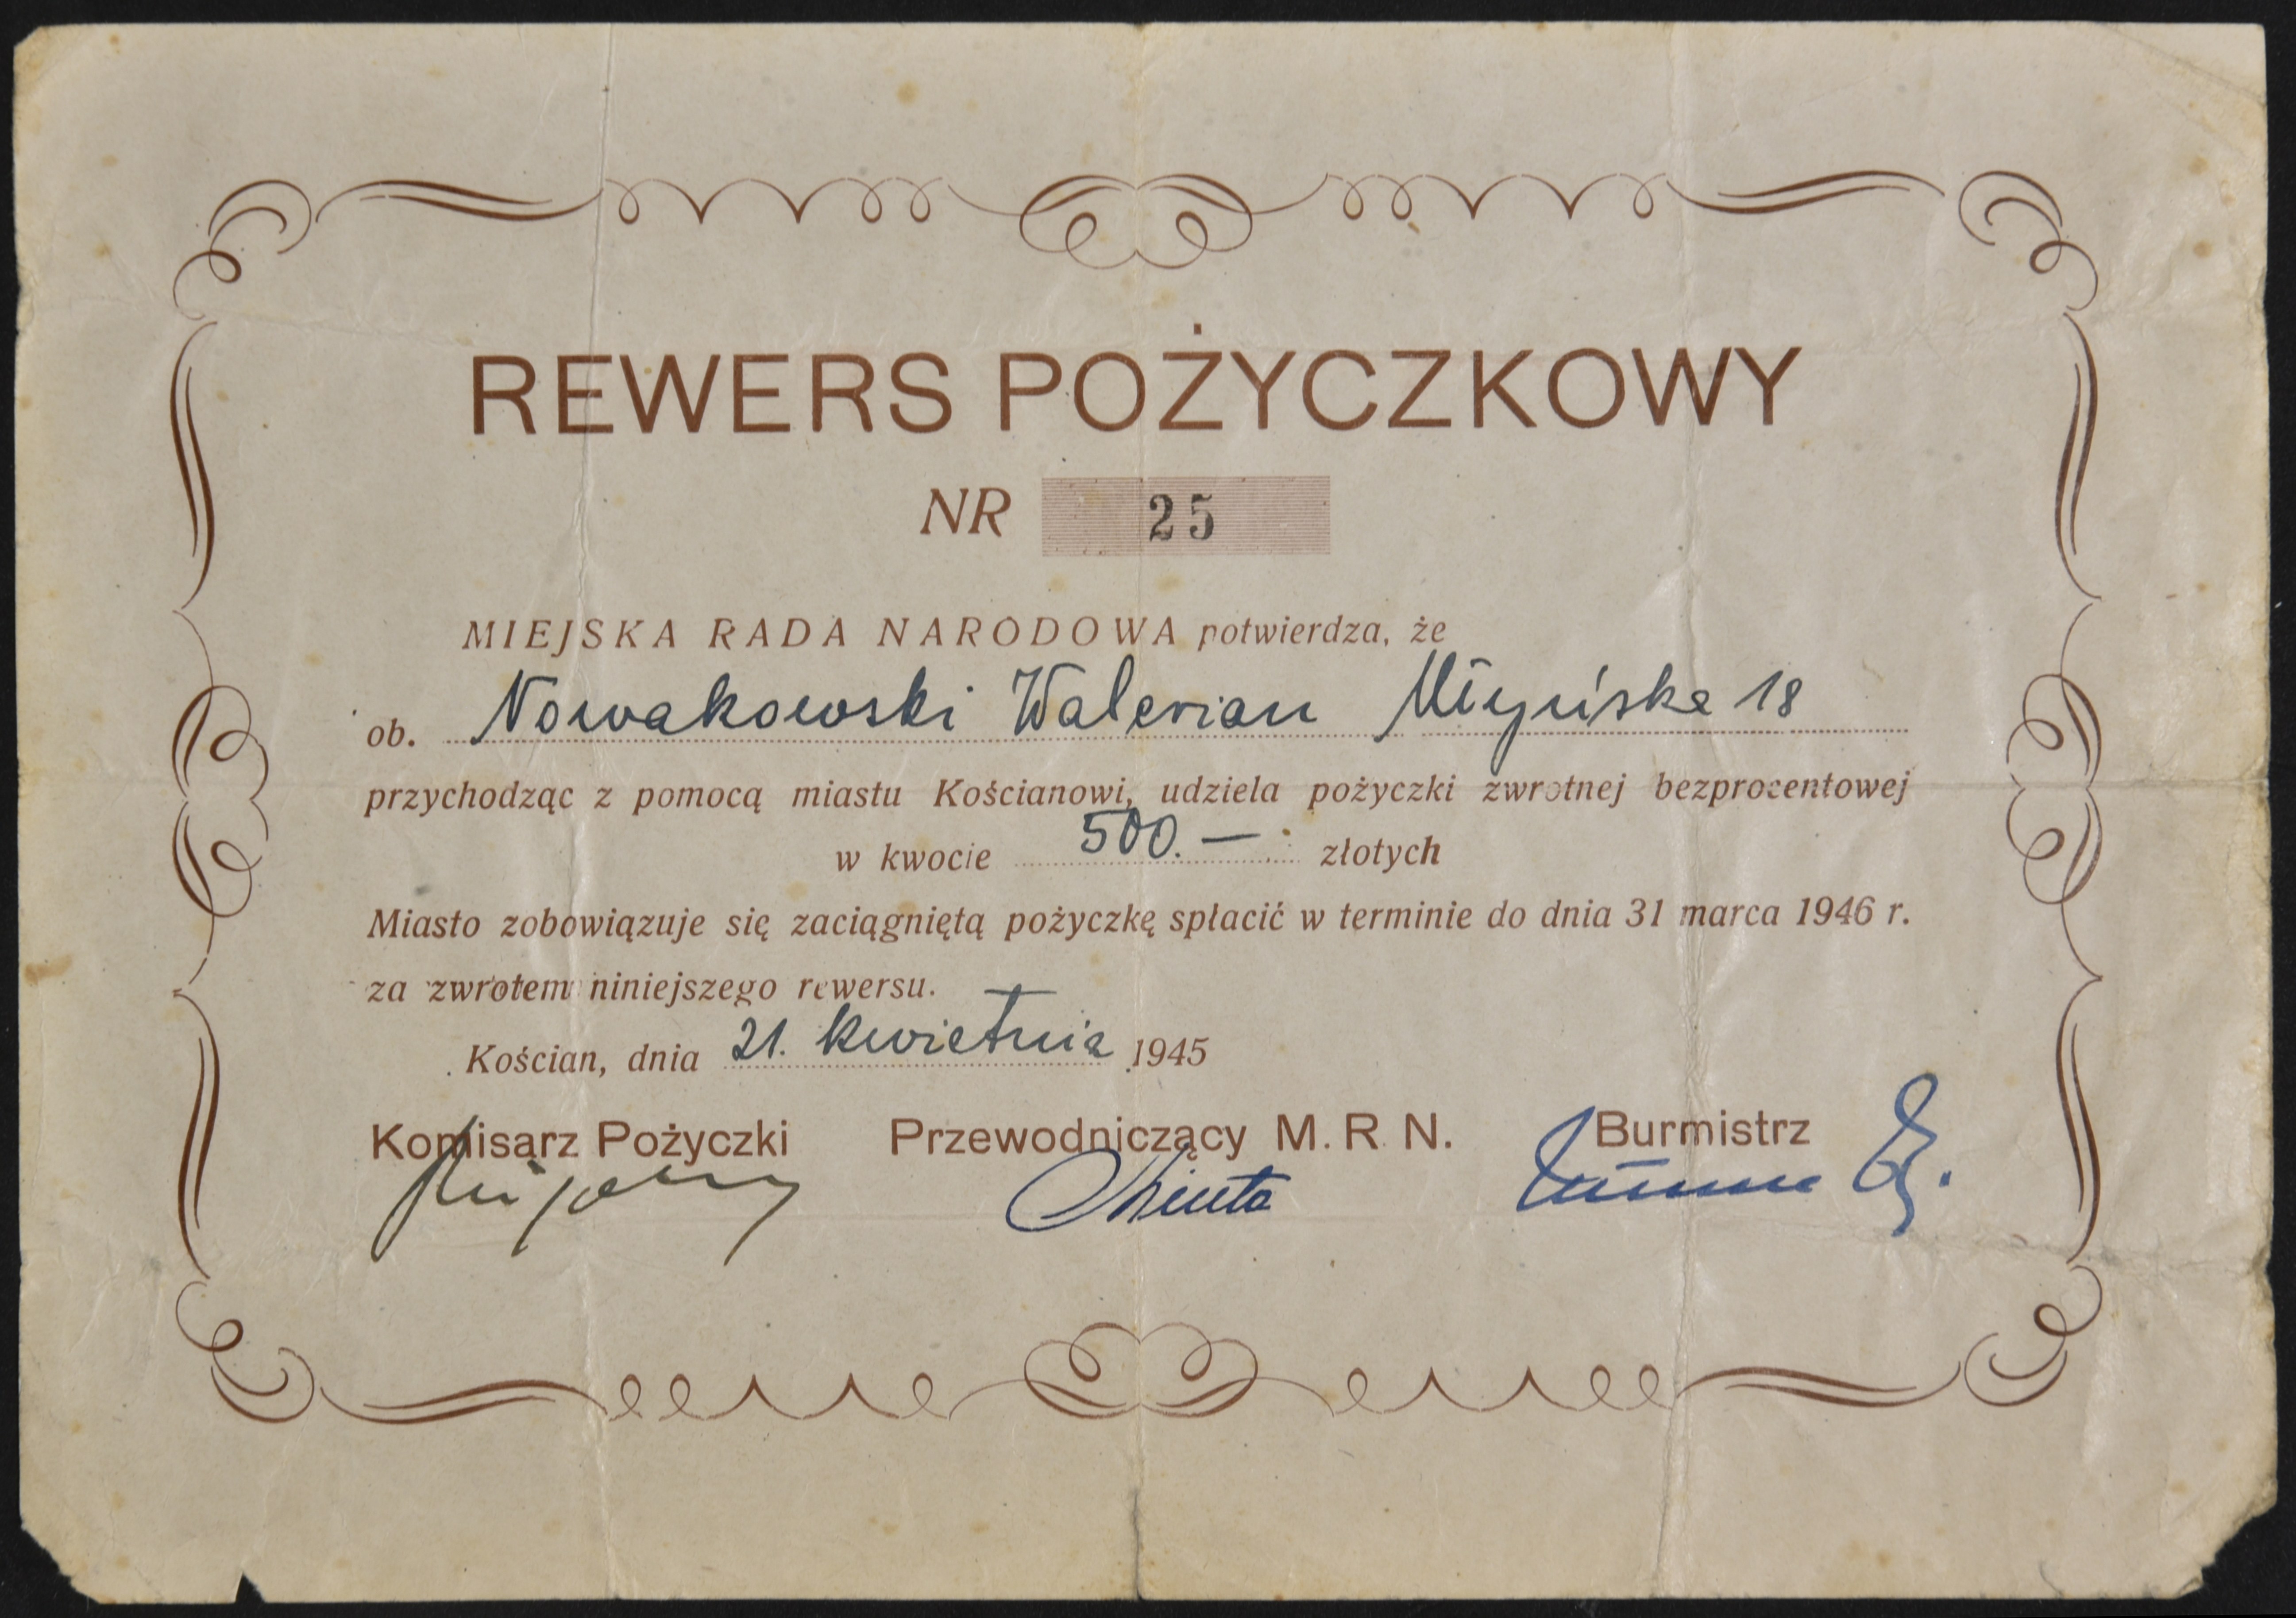 REWERS POŻYCZKOWY
NR 25
MIEJSKA RADA NARODOWA potwierdza, że
ob. Nowakowski Walerian Młyńska 18
przychodząc z pomocą miastu Kościanowi, udziela pożyczki zwrotnej bezprocentowej
w kwocie 500.— złotych
Miasto zobowiązuje się zaciągniętą pożyczkę spłacić w terminie do dnia 31 marca 1946 r.
za zwrotem niniejszego rewersu.
Kościan, dnia 21. kwietnia 1945
Komisarz Pożyczki Przewodniczący M. R. N. Burmistrz